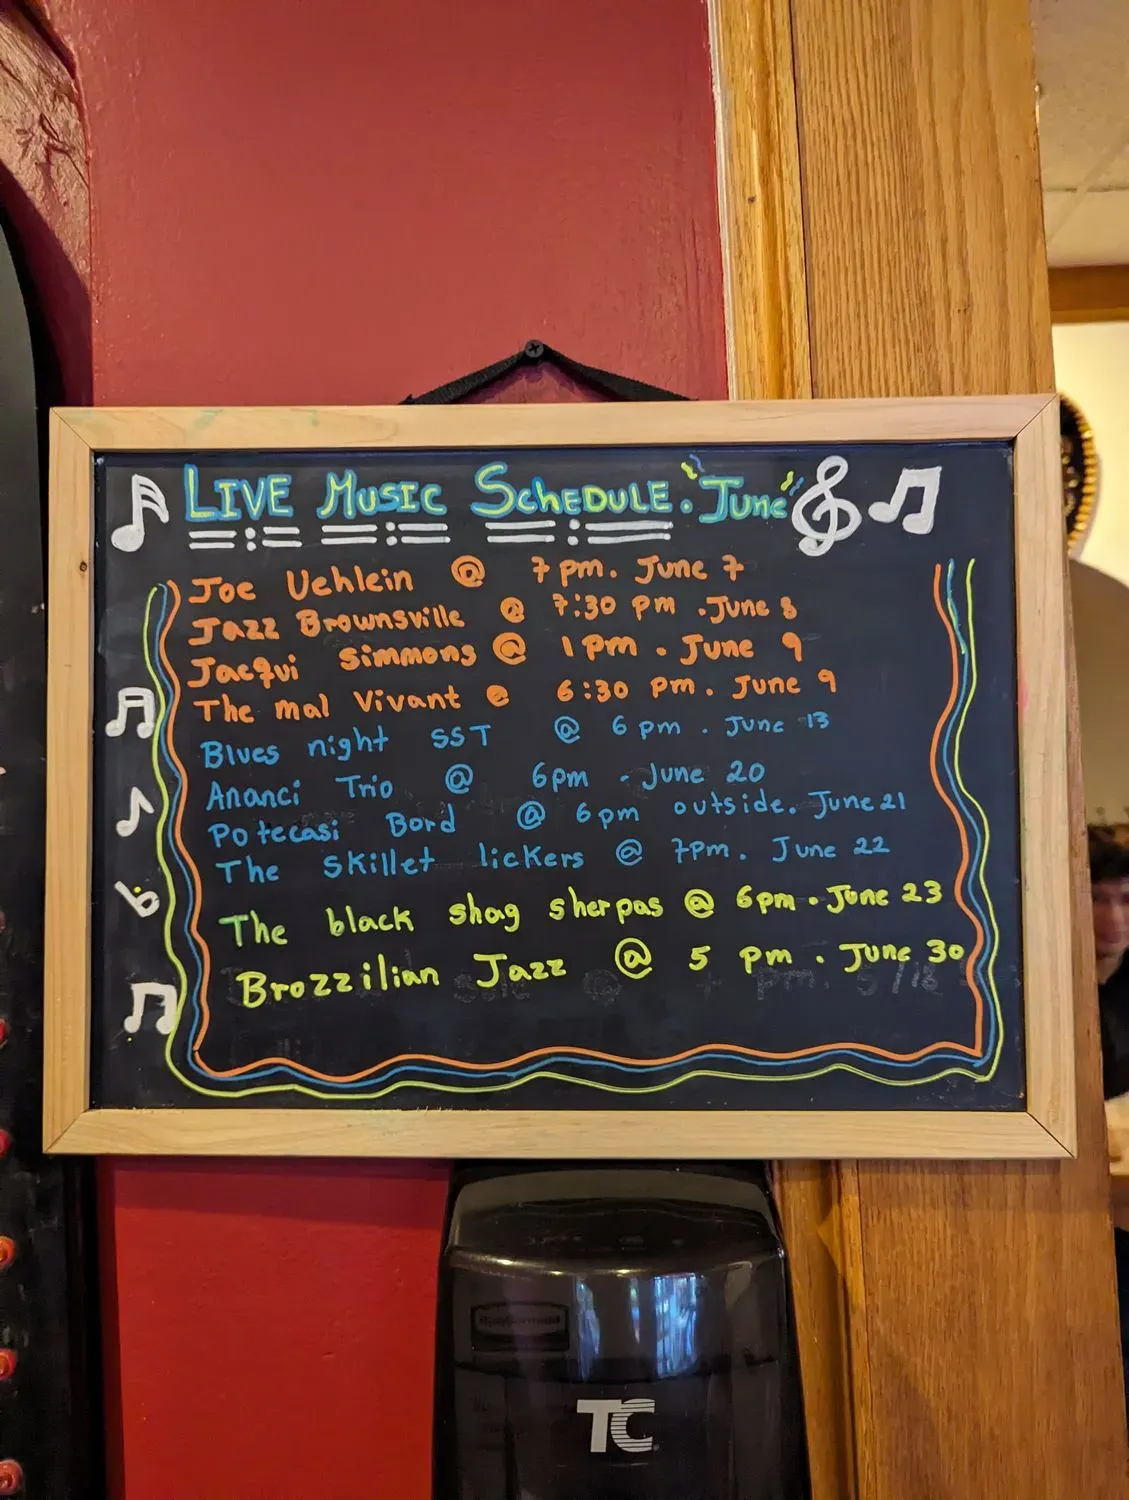 LIVE MUSIC SCHEDULE. "June"
Joe Uehlein @ 7 pm. June 7
Jazz Brownsville @ 7:30 pm . June 8
Jacqui simmons @ 1 pm . June 9
The mal Vivant @ 6:30 pm. June 9
Blues night SST @ 6 pm . June 13
Ananci Trio @ 6pm - June 20
Potecasi Bord @ 6pm outside. June 21
The Skillet lickers @ 7pm. June 22
The black shag sherpas @ 6pm . June 23
Brozzilian Jazz @ 5 pm . June 30
Rubbermaid
TC